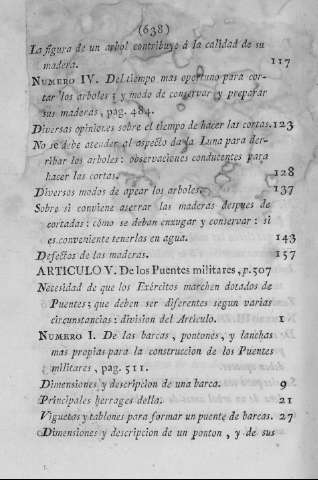 (638)
La figura de un arbol contribuye á la calidad de su
madera. 117
NUMERO IV. Del tiempo mas oportuno para cor-
tar los arboles; y modo de conservar y preparar
sus maderas, pag. 484.
Diversas opiniones sobre el tiempo de hacer las cortas. 123
No se debe atender al aspecto de la Luna para der-
ribar los arboles: observaciones conducentes para
hacer las cortas. 128
Diversos modos de apear los arboles. 137
Sobre si conviene aserrar las maderas despues de
cortadas: cómo se deban enxugar y conservar: si
es conveniente tenerlas en agua. 143
Defectos de las maderas. 157
ARTICULO V. De los Puentes militares, p.507
Necesidad de que los Exércitos marchen dotados de
Puentes; que deben ser diferentes segun varias
circunstancias: division del Articulo. 1
NUMERO I. De las barcas, pontones, y lanchas
mas propias para la construccion de los Puentes
militares, pag. 511.
Dimensiones y descripcion de una barca. 9
Principales herrages della. 21
Viguetas y tablones para formar un puente de barcas. 27
Dimensiones y descripcion de un ponton, y de sus